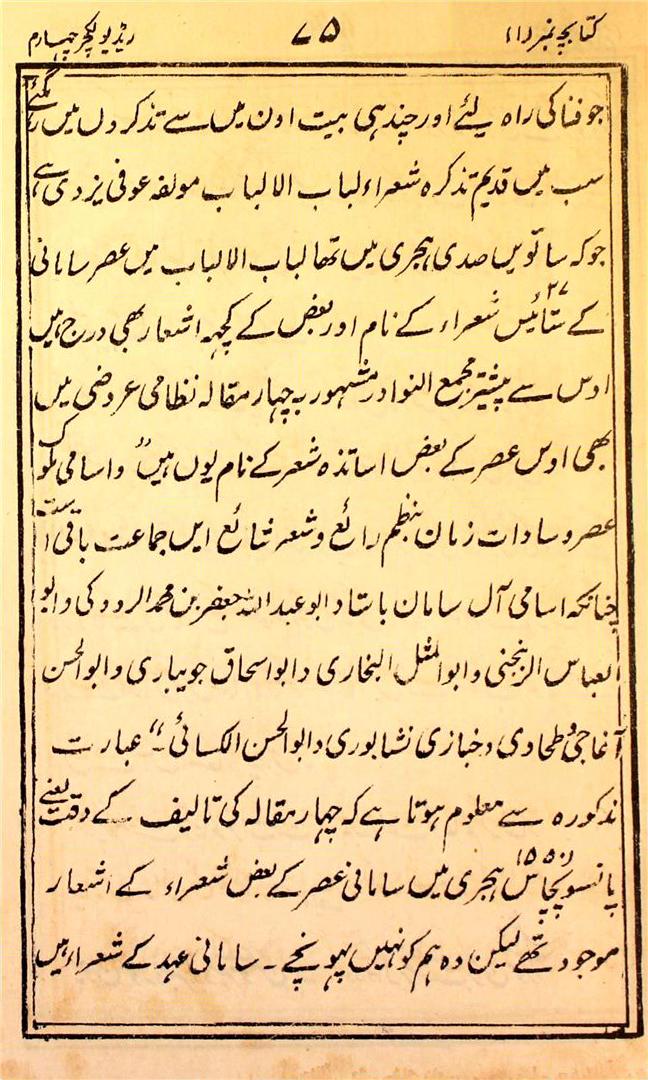 کتابچہ نمبر (۱) ۷۵ ریڈیو لکچر چہارم
جو فنا کی راہ لئے اور چند ہی بیت اون میں سے تذکروں میں رہ گئے
سب میں قدیم تذکرہ شعراء لباب الالباب مولفہ عوفی یزدی ہے
جو کہ ساتویں صدی ہجری میں تھا لباب الالباب میں عصر سامانی
کے ستائیس ۲۷ شعراء کے نام اور بعض کے کچہہ اشعار بھی درج ہیں
اوس سے پیشتر مجمع النوادر مشہور بہ چہار مقالہ نظامی عروضی میں
بھی اوس عصر کے بعض اساتذہ شعر کے نام یوں ہیں " و اسامی ملوک
عصر و سادات زمان بنظم رائع و شعر شائع ایں جماعت باقی است
چنانکہ اسامی آل سامان باستاد ابو عبد اللہ جعفر بن محمد الرودکی و ابو
العباس الربنجنی و ابو المثل البخاری و ابو اسحاق جویباری و ابو الحسن
آغاجی و طحاوی و خبازی نشابوری و ابو الحسن الکسائی ۔" عبارت
مذکورہ سے معلوم ہوتا ہے کہ چہار مقالہ کی تالیف کے وقت یعنے
پانسو پچاس (۵۵۰) ہجری میں سامانی عصر کے بعض شعراء کے اشعار
موجود تھے لیکن وہ ہم کو نہیں پہونچے ۔ سامانی عہد کے شعراء ہیں